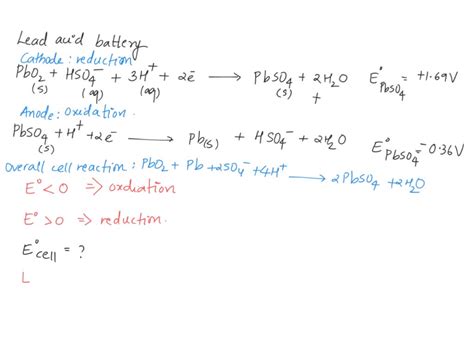 Lead acid battery
Cathode: reduction
PbO₂ + HSO₄⁻ + 3H⁺ + 2e⁻ → PbSO₄ + 2H₂O E° PbSO₄ = +1.69V
(s) (aq) (aq) (s) +
Anode: oxidation
PbSO₄ + H⁺ + 2e⁻ → Pb(s) + HSO₄⁻ + 2H₂O E° PbSO₄ = -0.36V
(s)
Overall cell reaction: PbO₂ + Pb + 2SO₄⁻ + 4H⁺ → 2PbSO₄ + 2H₂O
E° < 0 ⇒ oxduation
E° > 0 ⇒ reduction.
E°cell = ?
L